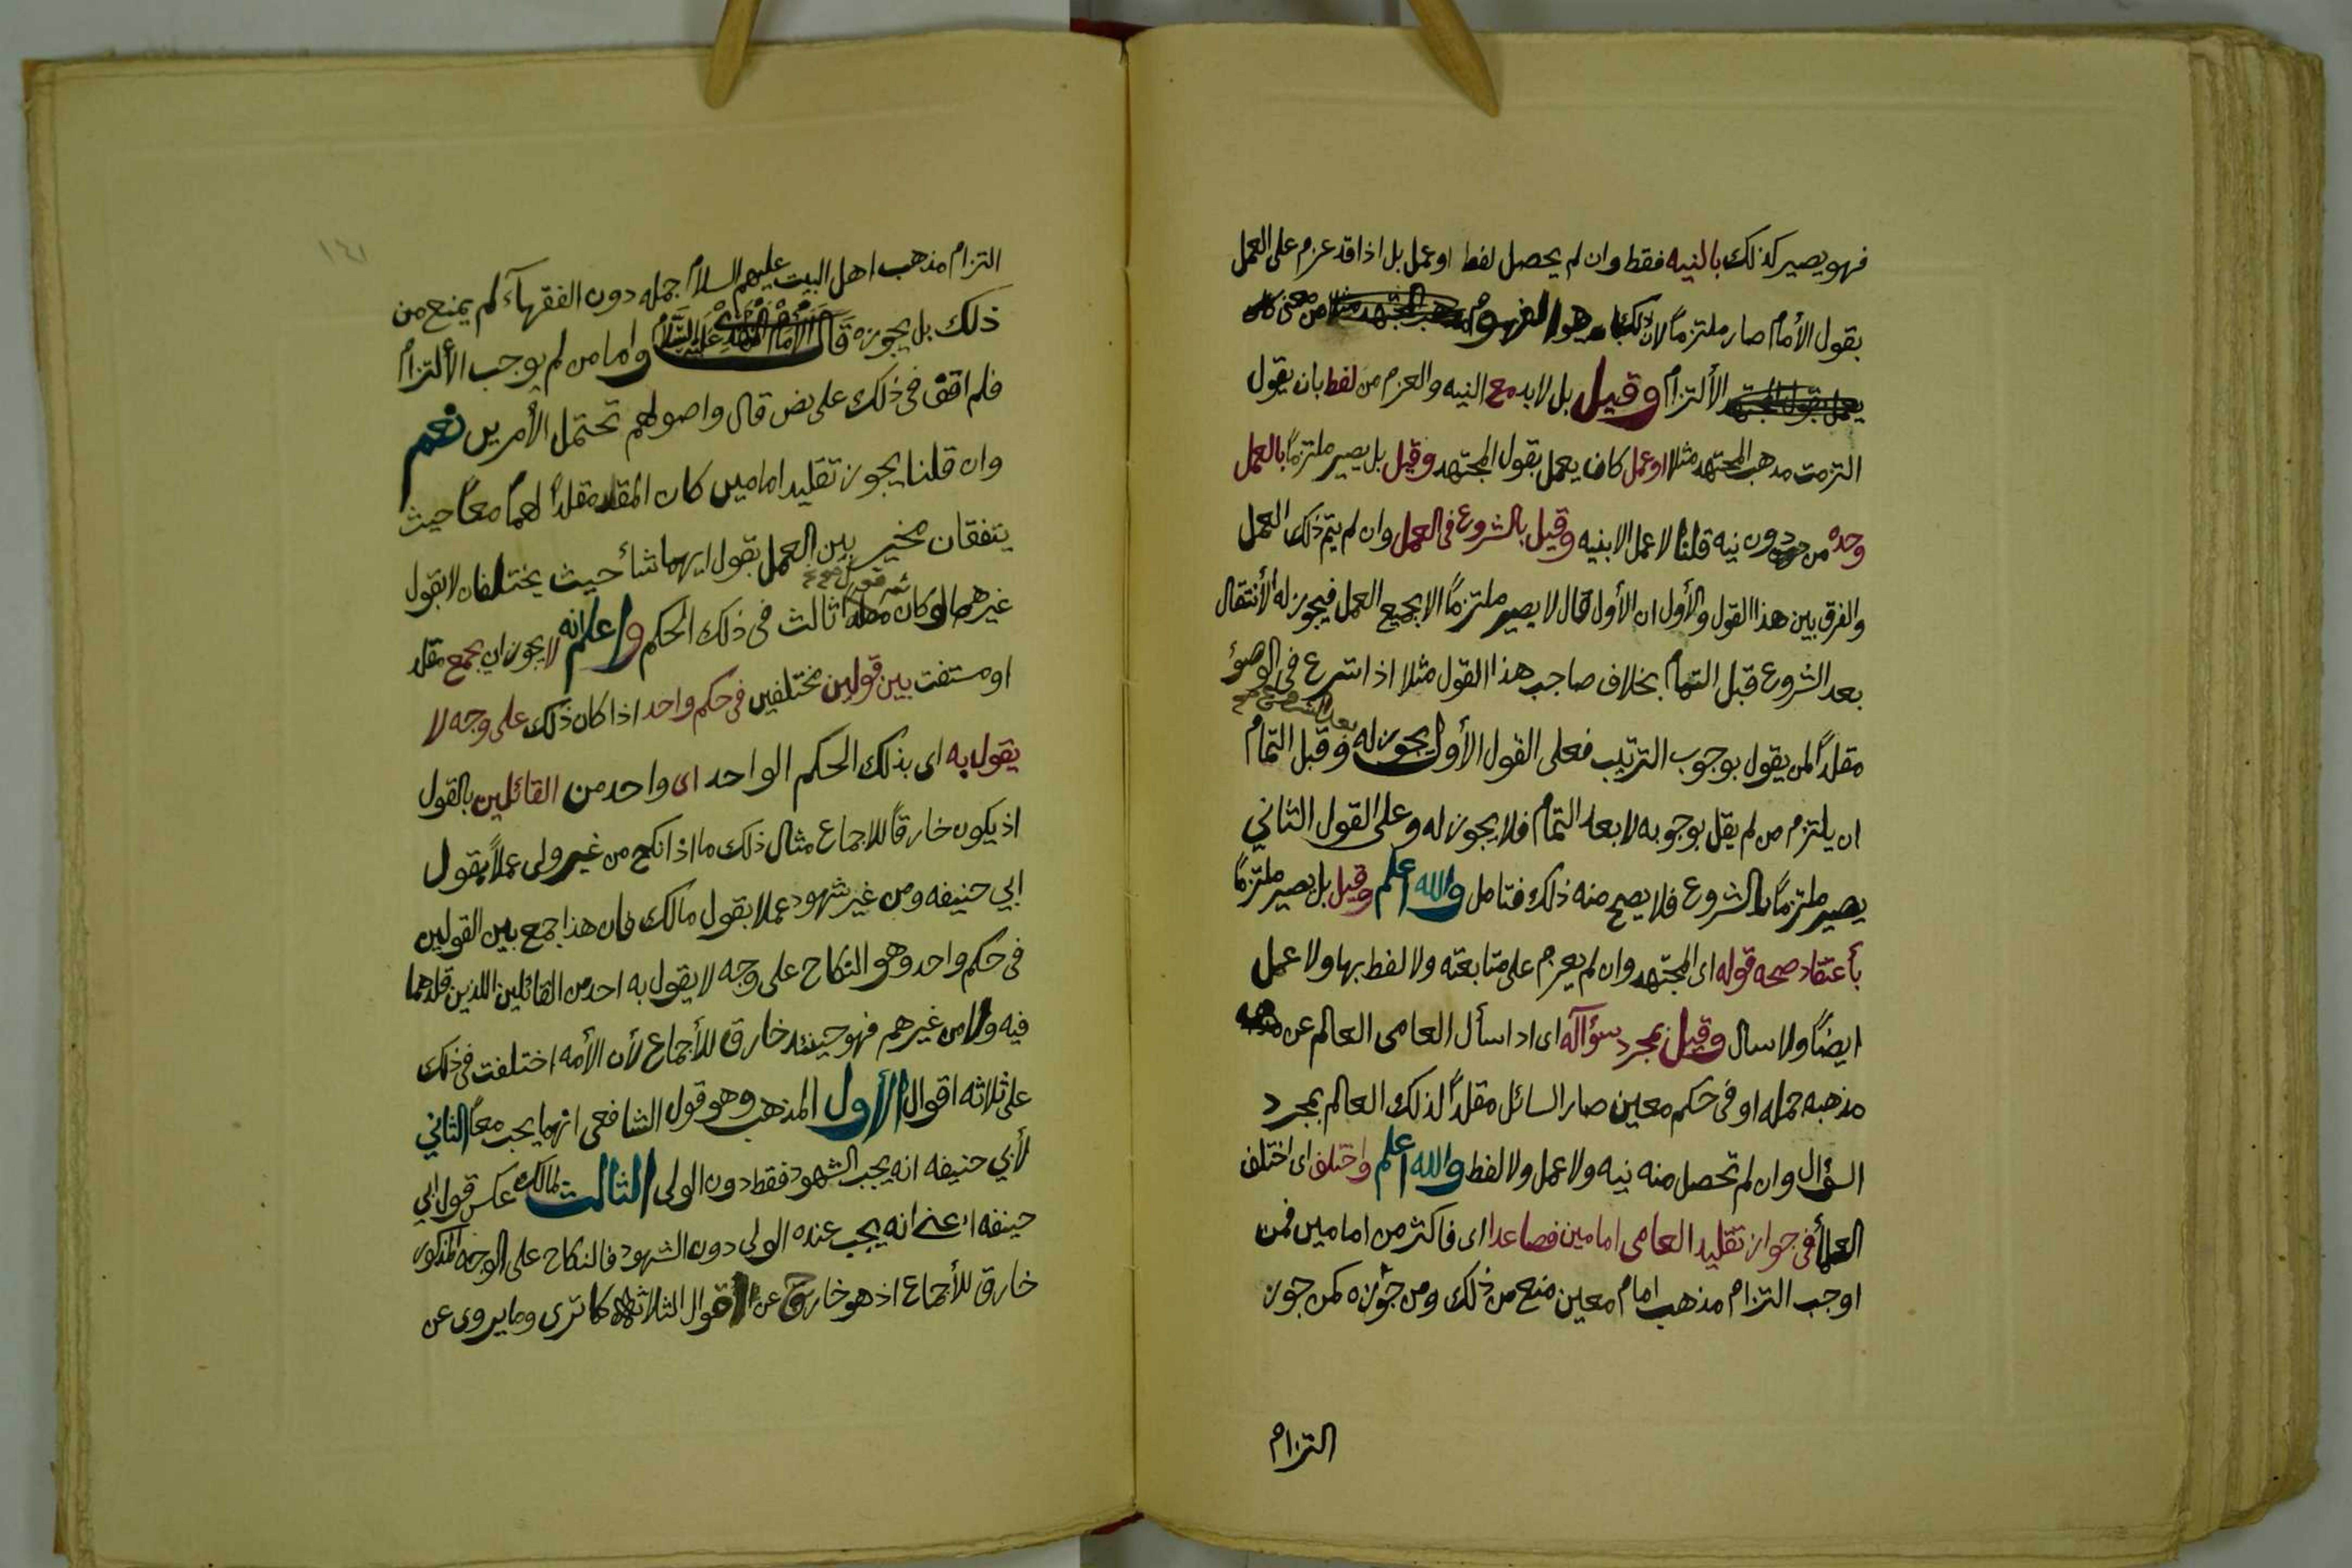 فهو يصير كذلك بالنيه فقط وان لم يحصل لفط او عمل بل اذا قد عزم على العمل
بقول الأمام صار ملتزماً لان ذلك هو المفهوم من معنى
الألتزام وقيل بل لابد مع النيه والعزم من لفط بان يقول
التزمت مذهب المجتهد مثلا او عمل كان يعمل بقول المجتهد وقيل بل يصير ملتزماً بالعمل
وحده من دون نيه قلنا لا عمل الا بنيه وقيل بالشروع فى العمل وان لم يتم ذلك العمل
والفرق بين هذا القول والأول ان الأول قال لا يصير ملتزماً الا بجميع العمل فيجوز له الأنتقال
بعد الشروع قبل التمام بخلاف صاحب هذا القول مثلا اذا اشرع فى الوضؤ
مقلداً لمن يقول بوجوب الترتيب فعلى القول الأول يجوز له بعد الشروع وقبل التمام
ان يلتزم من لم يقل بوجوبه لا بعد التمام فلا يجوز له وعلى القول الثاني
يصير ملتزماً بالشروع فلا يصح منه ذلك فتامل والله اعلم وقيل بل يصير ملتزماً
بأعتقاد صحه قوله اى المجتهد وان لم يعزم على متابعته ولا لفط بها ولا عمل
ايضاً ولا سال وقيل بمجرد سؤآله اى اذا سأل العامى العالم عن
مذهبه جمله او فى حكم معين صار السائل مقلداً لذلك العالم بمجرد
السؤال وان لم تحصل منه نيه ولا عمل ولا لفط والله اعلم واختلف اى اختلف
العلمأ فى جواز تقليد العامى امامين فصاعدا اى فاكثر من امامين فمن
اوجب التزام مذهب امام معين منع من ذلك ومن جوزه كمن جوز
التزام
١٤١
التزام مذهب اهل البيت عليهم السلام جمله دون الفقهاء لم يمنع من
ذلك بل يجوزه قال الأمام المهدي عليه السلام واما من لم يوجب الألتزام
فلم اقف فى ذلك على نص قال واصولهم تحتمل الأمرين نعم
وان قلنا يجوز تقليد امامين كان المقلد مقلداً لهما معاً حيث
يتفقان مخير بين العمل بقول ايهما شأ حيث يختلفان لا بقول
غيرهما لو كان ثم قول ثالث فى ذلك الحكم واعلم انه لا يجوز ان يجمع مقلد
او مستفت بين قولين مختلفين فى حكم واحد اذا كان ذلك على وجه لا
يقول به اى بذلك الحكم الواحد اى واحد من القائلين بالقول
اذ يكون خارقاً للاجماع مثال ذلك ما اذا نكح من غير ولى عملاً بقول
ابي حنيفه ومن غير شهود عملا بقول مالك فان هذا جمع بين القولين
فى حكم واحد وهو النكاح على وجه لا يقول به احد من القائلين اللذين قلدهما
فيه ولا من غيرهم فهو حينئذ خارق للأجماع لأن الأمه اختلفت فى ذلك
على ثلاثه اقوال الأول المذهب وهو قول الشافعى انهما يجب معاً الثاني
لأبي حنيفه انه يجب الشهود فقط دون الولى الثالث لمالك عكس قول ابي
حنيفه اعنى انه يجب عنده الولى دون الشهود فالنكاح على الوجه المذكور
خارق للأجماع اذ هو خارق عن الأقوال الثلاثه كما ترى وما يروى عن